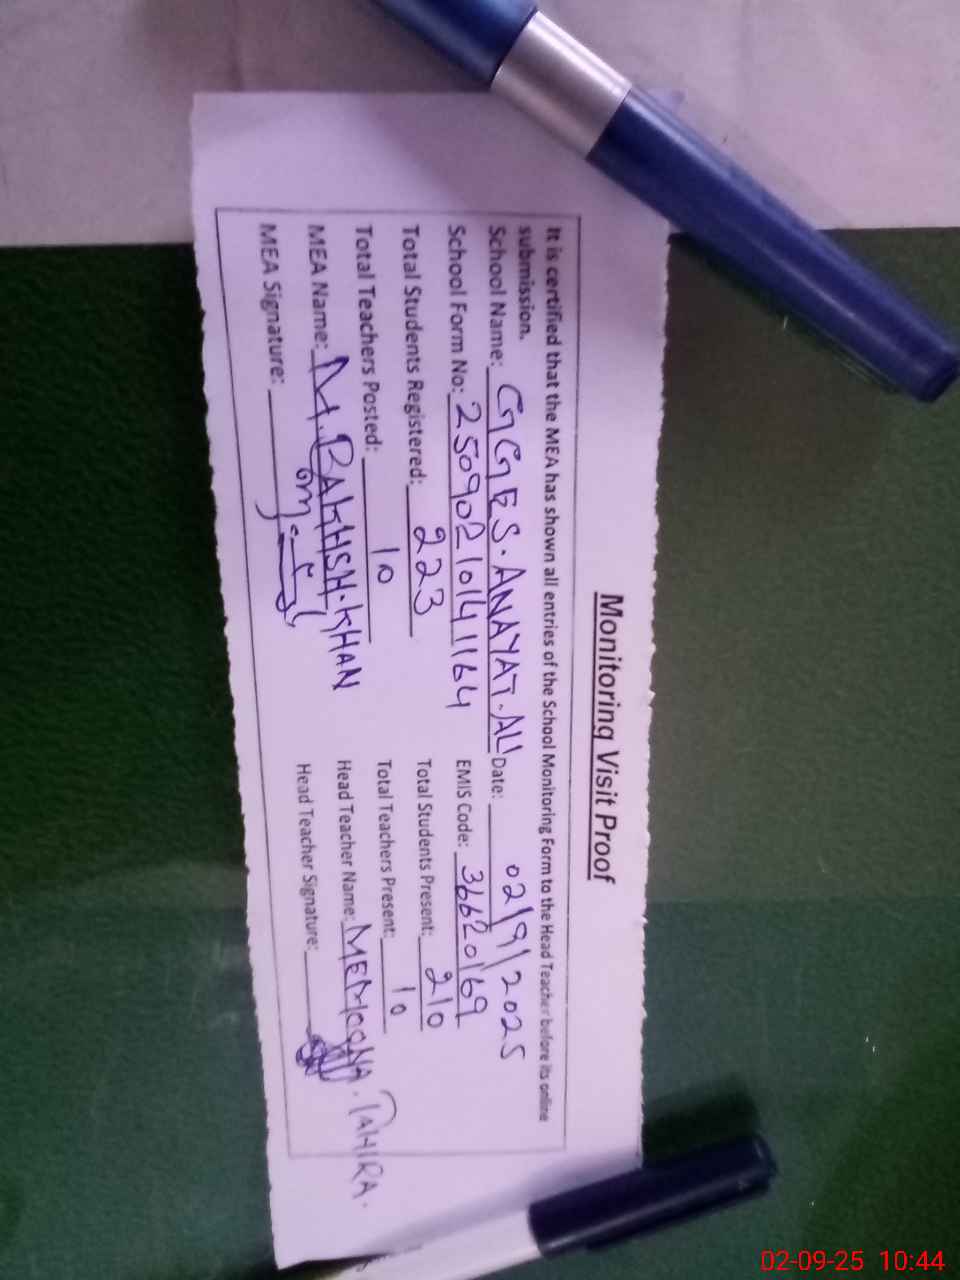 Monitoring Visit Proof
It is certified that the MEA has shown all entries of the School Monitoring Form to the Head Teacher before its online
submission.
School Name: GGES. ANAYAT. ALI Date: 02/9/2025
School Form No: 2509021014 1164 EMIS Code: 36620169
Total Students Registered: 223 Total Students Present: 210
Total Teachers Posted: 10 Total Teachers Present: 10
MEA Name: M. BAKHSH. KHAN Head Teacher Name: MEMOONA. TAHIRA.
MEA Signature: Head Teacher Signature:
02-09-25 10:44